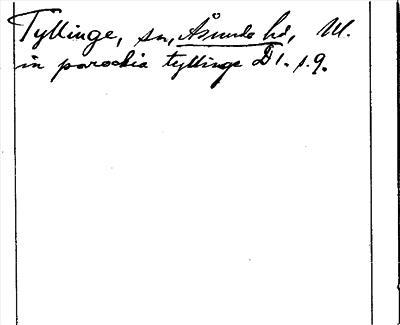 Tyllinge, sn, Åsunda hd, U.
in parochia tyllinge D1. s.9.